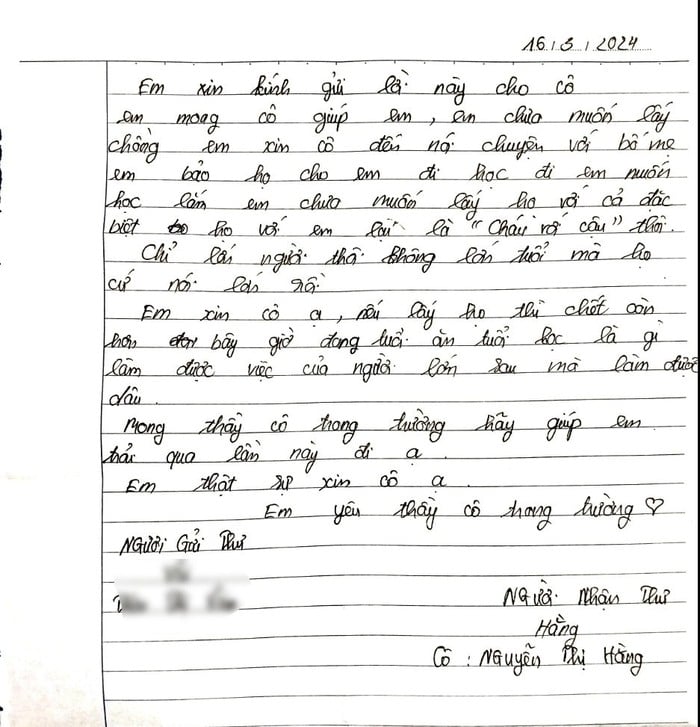 16/3/2024
Em xin kính gửi là: này cho cô
em mong cô giúp em, em chưa muốn lấy
chồng em xin cô đến nó. chuyện với bố mẹ
em bảo họ cho em đi học đi em muốn
học lắm em chưa muốn lấy họ với cả đặc
biệt họ với em lại là "Cháu với cậu" thôi.
Chỉ lấn người thô. không lớn tuổi mà họ
cứ nói lớn rồi
Em xin cô ạ, nếu lấy họ thì chết còn
hơn bây giờ đang tuổi ăn tuổi học là gì
làm được việc của người lớn sau mà làm được
dâu.
Mong thầy cô trong trường hãy giúp em
trải qua lần này đi ạ
Em thật sự xin cô ạ
Em yêu thầy cô trong trường ♡
Người Gửi Thư
Người Nhận Thư
Hằng
Cô : Nguyễn Thị Hằng